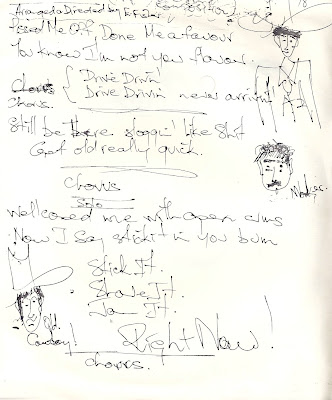 Arranged & Directed by E Fisher
Pissed Me Off, Done Me a favour
You know I'm not your flavour.
Chorus { Drive Drivin'
Chorus. Drive Drivin never arrivin'
Still be there. sloggin' like shit
Get old really quick.
Chorus
Solo
Wellcomed me with open arms
Now I say stick it in you bum
Stick It.
Shove It.
Jam It.
Old Cowboy!
Right Now!
Chorus.